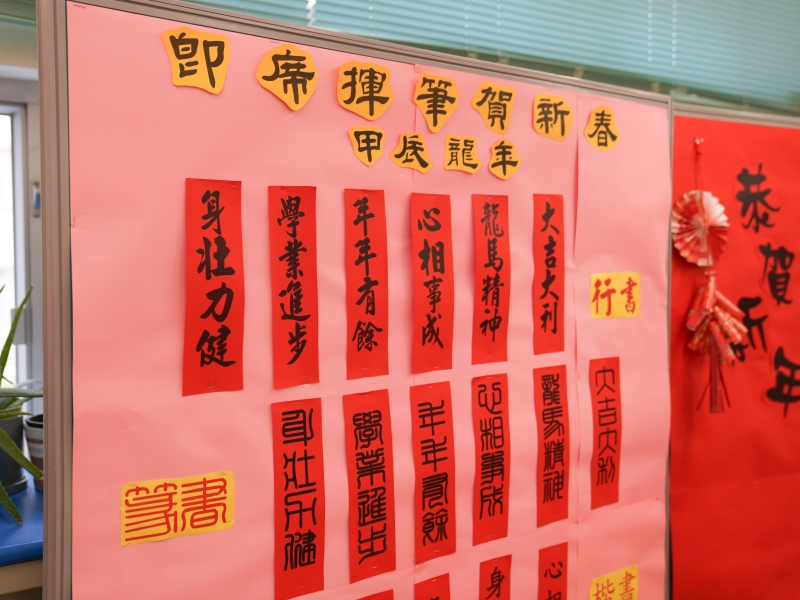 即席揮筆賀新春
甲辰龍年
大吉大利
龍馬精神
心相事成
年年有餘
學業進步
身壯力健
行書
大吉大利
龍馬精神
心相事成
年年有餘
學業進步
身壯力健
篆書
楷書
心相
身
恭賀新年